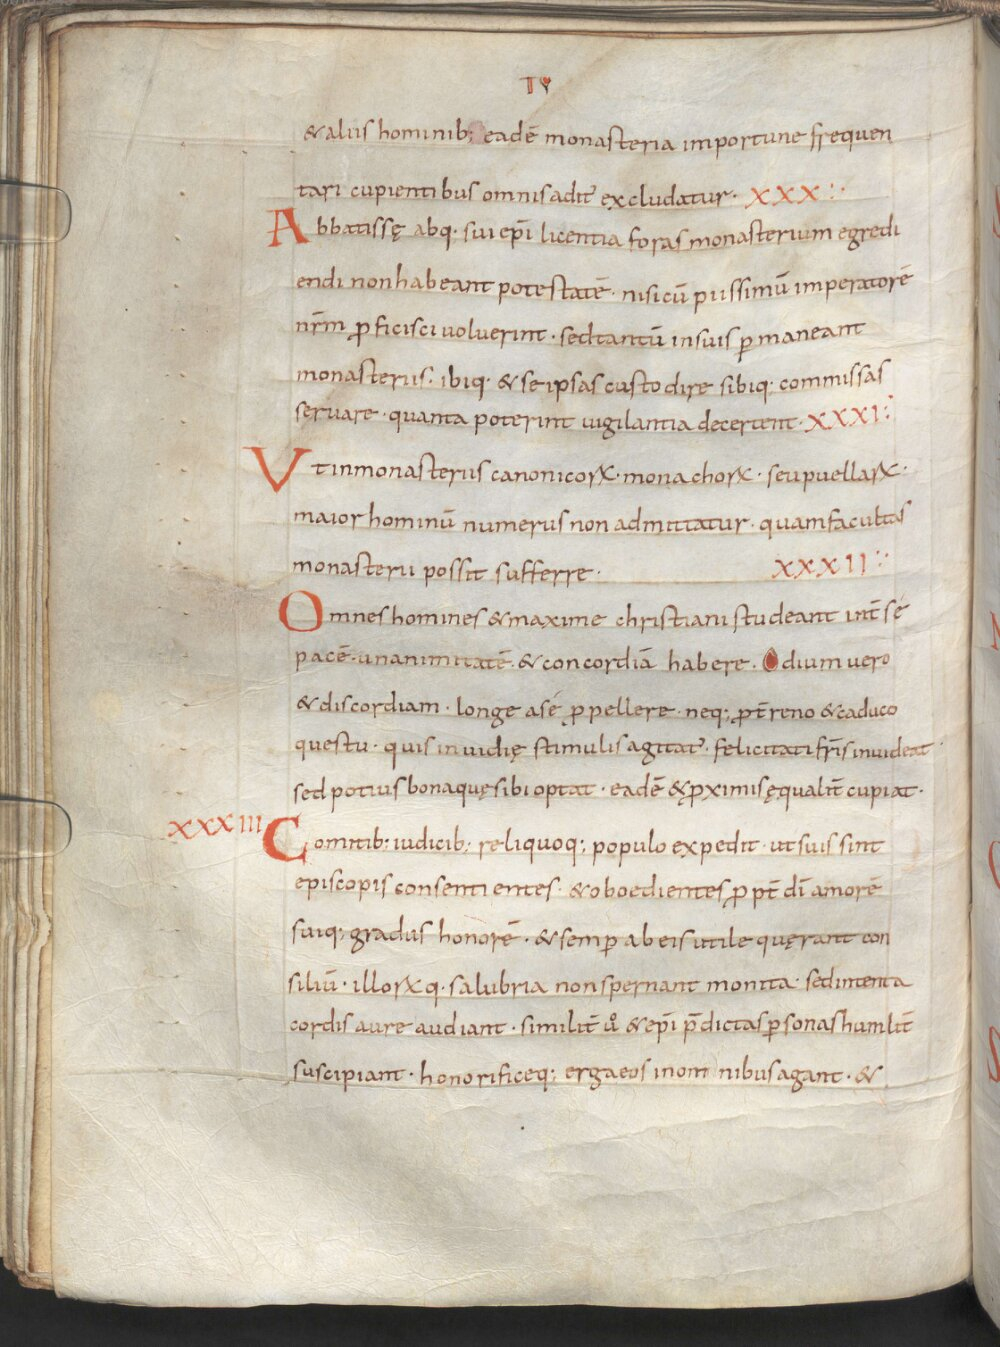 IV
&aliis hominib; eadē monasteria importune frequen
tari cupientibus omnis adit᾽ excludatur · XXX :·
Abbatissę absq· sui ep̄i licentia foras monasterium egredi
endi non habeant potestatē · nisi cū piissimū imperatorē
nr̄m ꝓficisci voluerint · sed tantū in suis ꝑmaneant
monasteriis · ibiq· & se ipsas custodire sibiq; commissas
servare · quanta poterint vigilantia decertent · XXXI :·
Vt in monasteriis canonicorꝝ · monachorꝝ · seu puellarꝝ ·
maior hominū numerus non admittatur · quam facultas
monasterii possit sufferre · XXXII :·
Omnes homines & maxime christiani studeant int̄ se
pacē · unanimitatē · & concordiā habere · Odium vero
& discordiam · longe a se ꝓpellere · neq; ꝓ t̄reno & caduco
questu · quis invidię stimulis agitat᾽ · felicitati fr̄is invideat
sed potius bona quę sibi optat · eadē & ꝓximis ęqualit̄ cupiat ·
XXXIII Comitib; iudicib; reliquoq; populo expedit · ut suis sint
episcopis consentientes · & oboedientes ꝓpt̄ dī amorē
suiq; gradus honorē · & semꝑ ab eis utile quęrant con
siliū · illorꝝq· salubria non spernant monita · sed intenta
cordis aure audiant · similit̄ uº & ep̄i p̄dictas ꝑsonas humilit̄
suscipiant · honorificeq; erga eos in omnibus agant · &